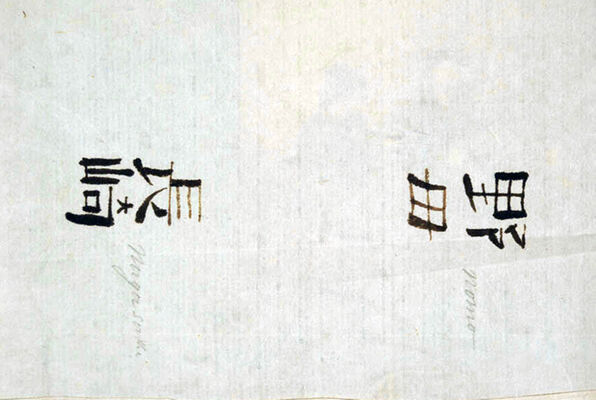 野母
Nomo
長崎
Nagasaki